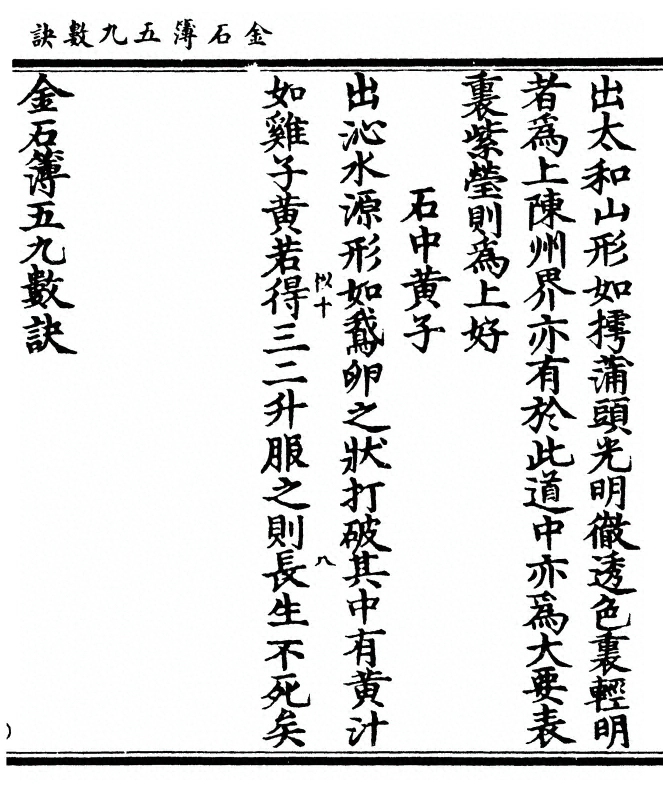 金石簿五九數訣
出太和山形如摴蒲頭光明徹透色裏輕明
者爲上陳州界亦有於此道中亦爲大要表
裏紫瑩則爲上好
石中黃子
出沁水源形如鵞卵之狀打破其中有黃汁
如雞子黃若得三二升服之則長生不死矣
金石簿五九數訣